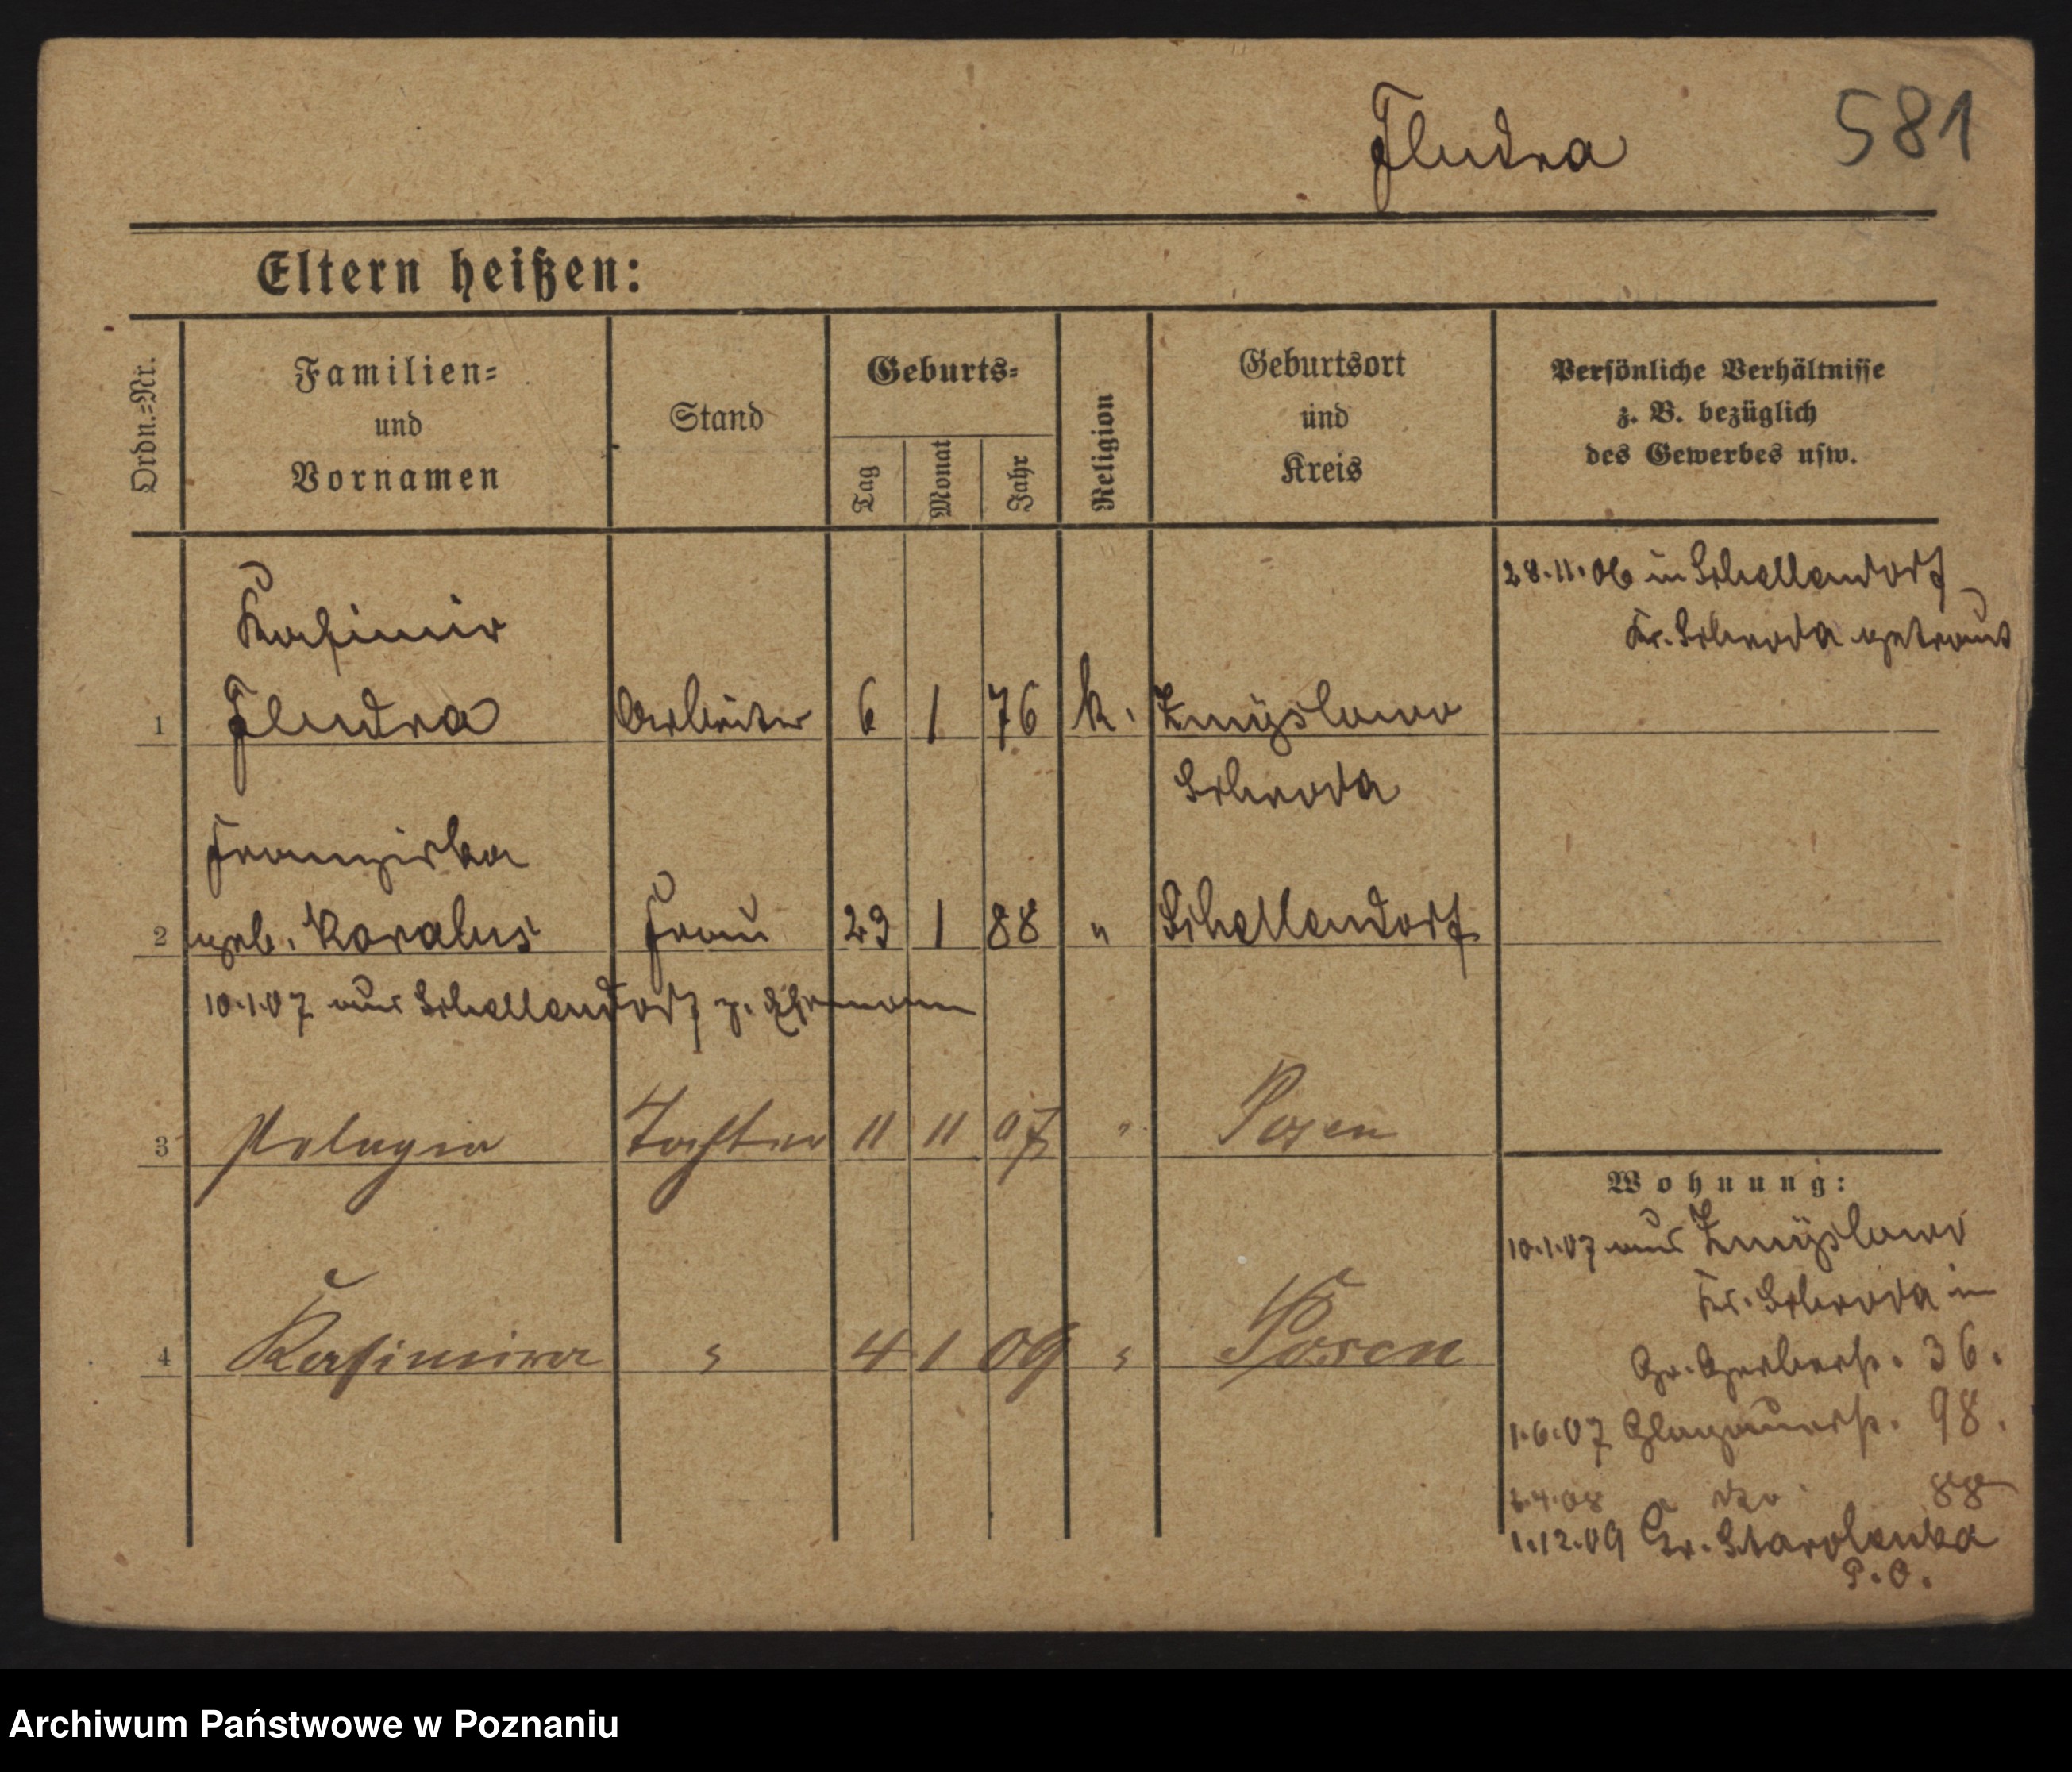 Fludra 581
Eltern heißen:
Ordn.=Nr.
Familien=
und
Vornamen
Stand
Geburts=
Tag
Monat
Jahr
Religion
Geburtsort
und
Kreis
Persönliche Verhältnisse
z. B. bezüglich
des Gewerbes usw.
28.11.06 in Schellendorf
Kr. Schroda getraut
Kasimir
1 Fludra Arbeiter 6 1 76 k. Zmÿslowo
Schroda
Franziska
2 geb. Koralus Frau 23 1 88 " Schellendorf
10.1.07 aus Schellendorf z. Ehemann
3 Pelagia Tochter 11 11 07 " Posen
4 Kasimira " 4 1 09 " Posen
Wohnung:
10.1.07 aus Zmÿslowo
Kr. Schroda in
Gr. Gerberstr. 36.
1.6.07 Glogauerstr. 98.
2.4.08 dto 88
1.12.09 Gr. Starolenka
P. O.
Archiwum Państwowe w Poznaniu